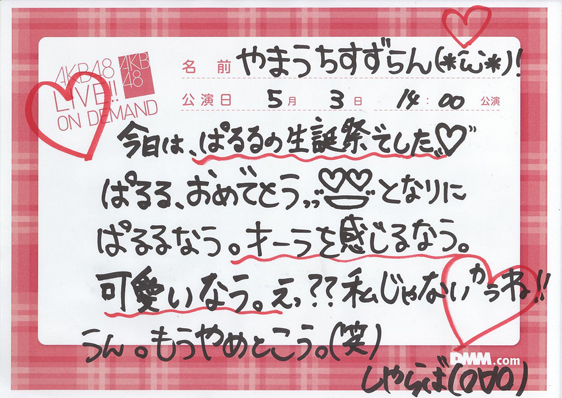 AKB48
LIVE!!
ON DEMAND
AKB
48
名前 やまうちすずらん(*´ω`*)!
公演日 5月 3日 14:00 公演
今日は、ぱるるの生誕祭でした♡
ぱるる、おめでとうとなりに
ぱるるなう。オーラを感じるなう。
可愛いなう。えっ??私じゃないかうね!!
うん。もうやめとこう。(笑)
DMM.com
しゃらば(o∀o)